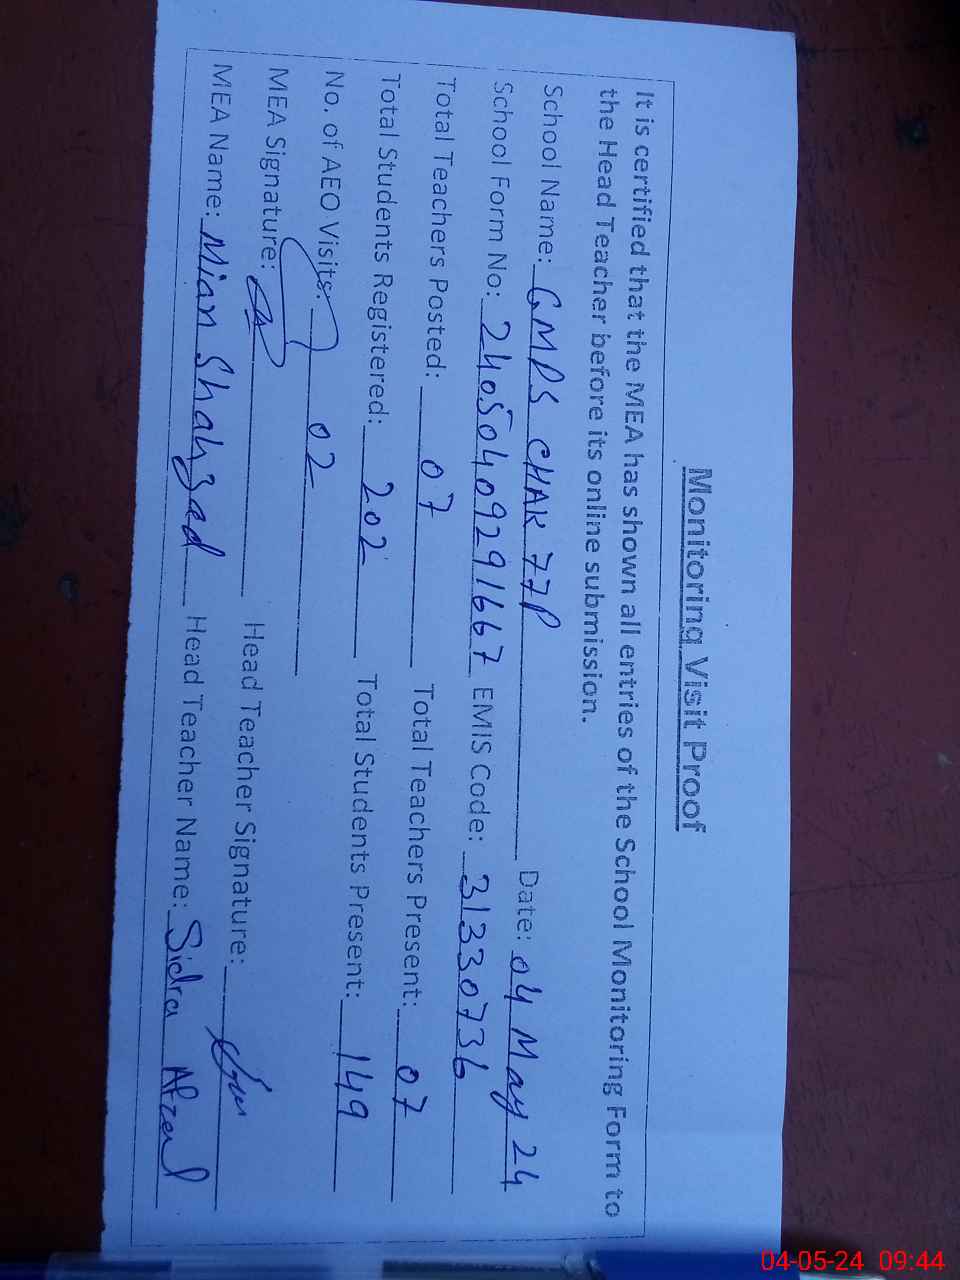 Monitoring Visit Proof
It is certified that the MEA has shown all entries of the School Monitoring Form to
the Head Teacher before its online submission.
School Name: GMPS CHAK 77P Date: 04 May 24
School Form No: 24050409291667 EMIS Code: 31330736
Total Teachers Posted: 07 Total Teachers Present: 07
Total Students Registered: 202 Total Students Present: 149
No. of AEO Visits: 02
MEA Signature: Head Teacher Signature:
MEA Name: Mian Shahzad Head Teacher Name: Sidra Afzal
04-05-24 09:44